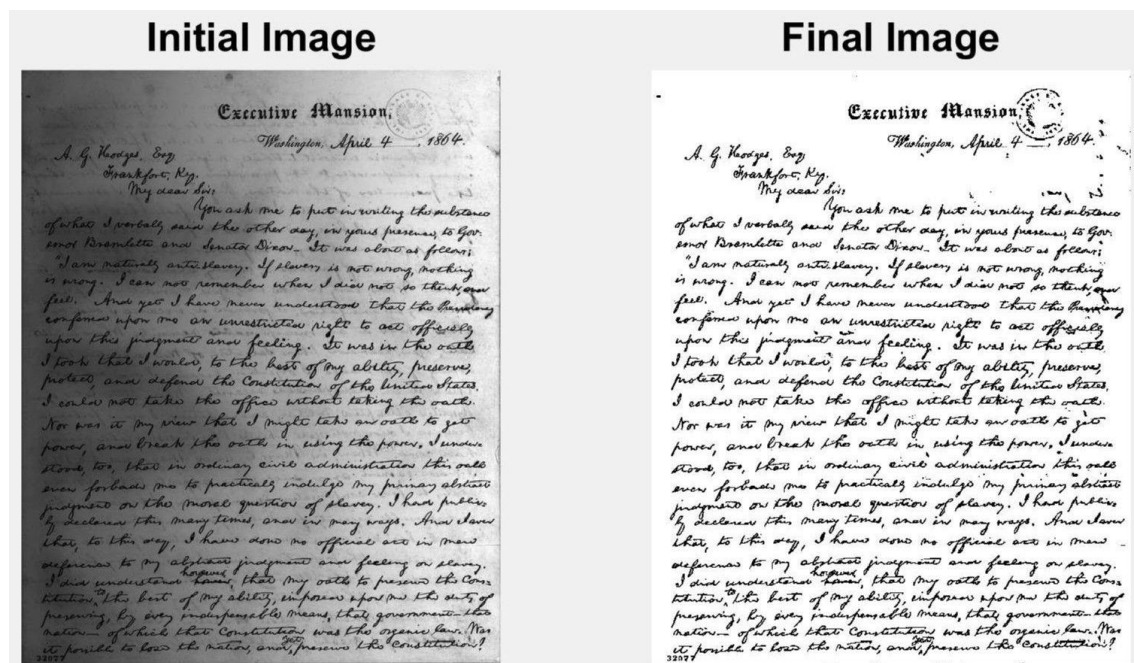 Initial Image
Executive Mansion,
Washington, April 4, 1864.
A. G. Hodges, Esq
Frankfort, Ky.
My dear Sir:
You ask me to put in writing the substance
of what I verbally said the other day, in your presence, to Gov-
ernor Bramlette and Senator Dixon. It was about as follows:
"I am naturally anti-slavery. If slavery is not wrong, nothing
is wrong. I can not remember when I did not so think, and
feel. And yet I have never understood that the Presidency
conferred upon me an unrestricted right to act officially
upon this judgment and feeling. It was in the oath
I took that I would, to the best of my ability, preserve,
protect, and defend the Constitution of the United States.
I could not take the office without taking the oath.
Nor was it my view that I might take an oath to get
power, and break the oath in using the power. I under-
stood, too, that in ordinary civil administration this oath
even forbade me to practically indulge my primary abstract
judgment on the moral question of slavery. I had public-
ly declared this many times, and in many ways. And I aver
that, to this day, I have done no official act in mere
deference to my abstract judgment and feeling on slavery.
I did understand however, that my oath to preserve the Cons-
titution to the best of my ability, imposed upon me the duty of
preserving, by every indispensable means, that government—that
nation—of which that Constitution was the organic law. Was
it possible to lose the nation, and yet preserve the Constitution?
32077
Final Image
Executive Mansion,
Washington, April 4, 1864.
A. G. Hodges, Esq
Frankfort, Ky.
My dear Sir:
You ask me to put in writing the substance
of what I verbally said the other day, in your presence, to Gov-
ernor Bramlette and Senator Dixon. It was about as follows:
"I am naturally anti-slavery. If slavery is not wrong, nothing
is wrong. I can not remember when I did not so think, and
feel. And yet I have never understood that the Presidency
conferred upon me an unrestricted right to act officially
upon this judgment and feeling. It was in the oath
I took that I would, to the best of my ability, preserve,
protect, and defend the Constitution of the United States.
I could not take the office without taking the oath.
Nor was it my view that I might take an oath to get
power, and break the oath in using the power. I under-
stood, too, that in ordinary civil administration this oath
even forbade me to practically indulge my primary abstract
judgment on the moral question of slavery. I had public-
ly declared this many times, and in many ways. And I aver
that, to this day, I have done no official act in mere
deference to my abstract judgment and feeling on slavery.
I did understand however, that my oath to preserve the Cons-
titution to the best of my ability, imposed upon me the duty of
preserving, by every indispensable means, that government—that
nation—of which that Constitution was the organic law. Was
it possible to lose the nation, and yet preserve the Constitution?
32077